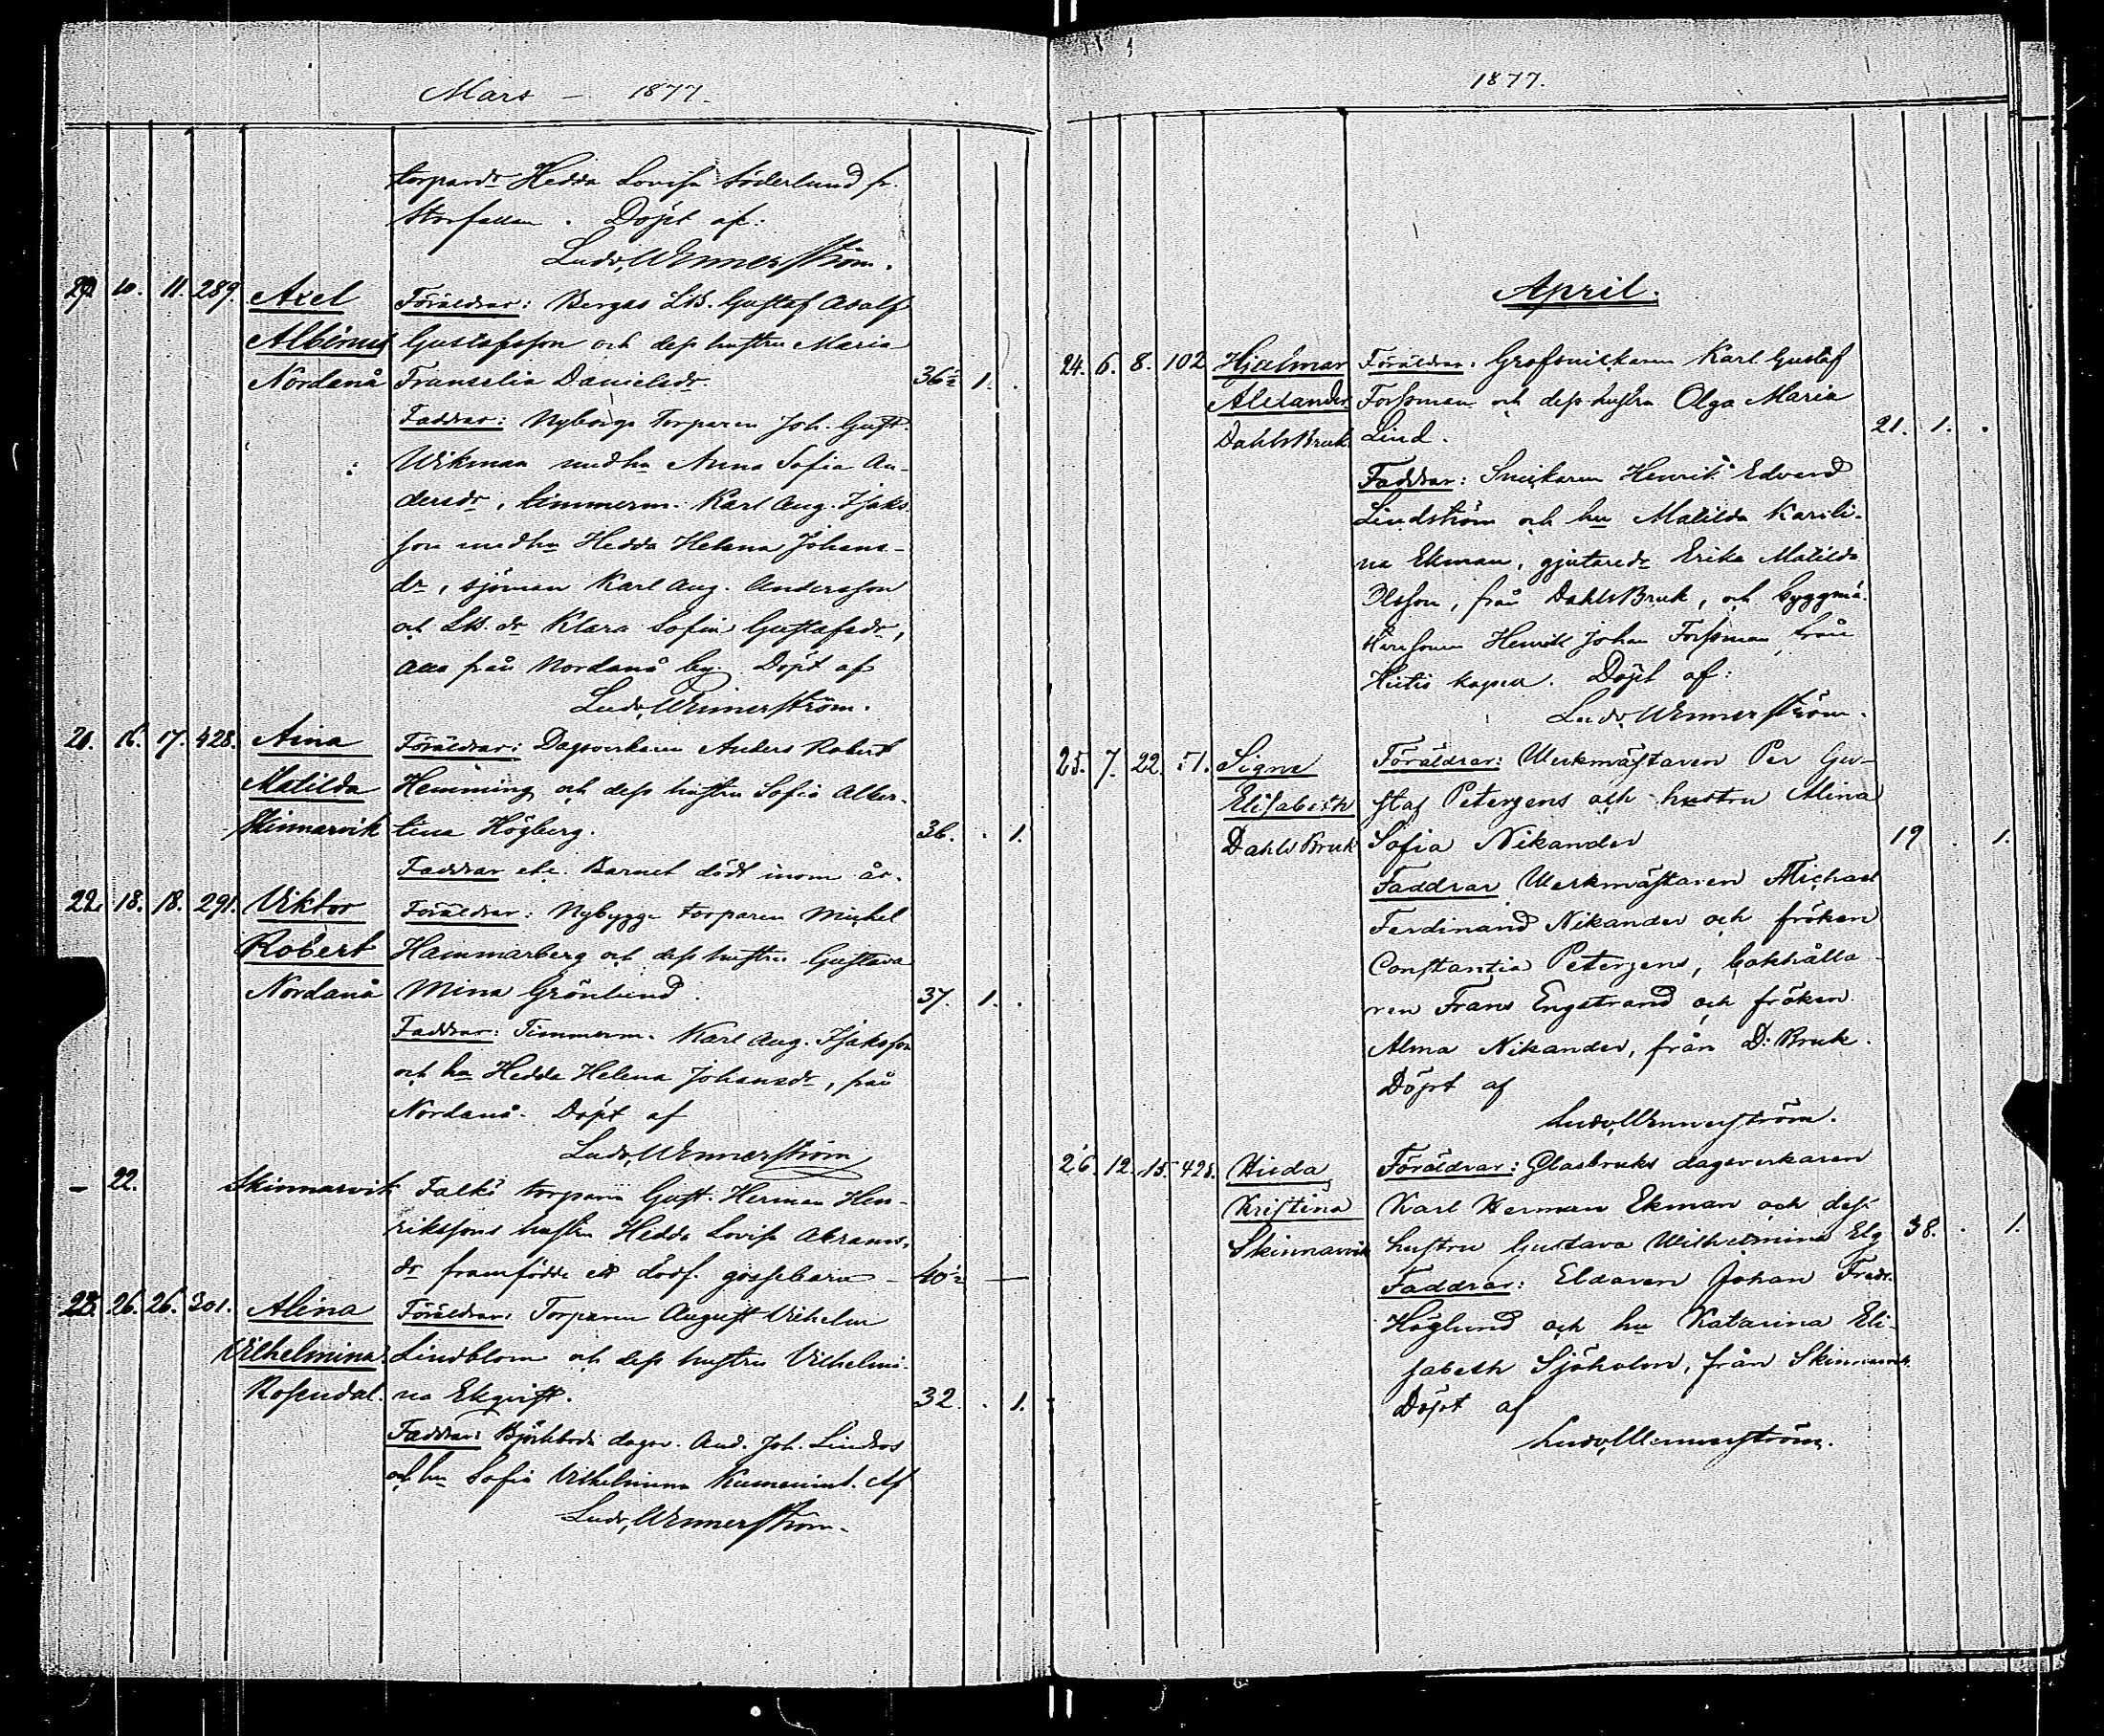 Mars — 1877.
torpardr Hedda Lovisa Söderlund fr.
Storfallan. Döpt af:
Ludv. Wennerström.
20. 10. 11. 289. Axel Föräldrar: Bergas LB. Gustaf Adolf
Albinus Gustafsson och dess hustru Maria
Nordanå Franselia Danielsdr. 36½ 1. .
Faddrar: Nyborgs torparen Joh. Gust.
Wikman med hu Anna Sofia An-
dersdr, timmerm. Karl Aug. Isaks-
son med hu Hedda Helena Johans-
dr, sjöman Karl Aug. Andersson
och LB. dr Klara Sofia Gustafsdr,
alla från Nordanå by. Döpt af
Ludv. Wennerström.
21. 16. 17. 428. Aina Föräldrar: Dagsverkaren Anders Robert
Matilda Hemming och dess hustru Sofia Alber-
Skinnarvik tina Högberg. 36. . 1.
Faddrar etc. Barnet dödt inom år.
22. 18. 18. 291. Viktor Föräldrar: Nybygge torparen Mickel
Robert Hammarberg och dess hustru Gustava
Nordanå Mina Grönlund. 37. 1. .
Faddrar: Timmerm. Karl Aug. Isaksson
och hu Hedda Helena Johansdr, från
Nordanå. Döpt af
Ludv. Wennerström
— 22. Skinnarvik Falks torparn Gust. Herman Hen-
rikssons hustru Hedda Lovisa Abrams-
dr framfödde ett dödf. gossebarn — 40½ —
23. 26. 26. 301. Alina Föräldrar: Torparen August Vilhelm
Vilhelmina Lindblom och dess hustru Vilhelmi-
Rosendal. na Ekqvist. 32. . 1.
Faddrar: Björkboda dagsv. And. Joh. Lindros
och hu Sofia Vilhelmina Af
Ludv. Wennerström.
1877.
April.
24. 6. 8. 102 Hjalmar Föräldrar: Grofsmeden Karl Gustaf
Alexander. Forssman och dess hustru Olga Maria
Dahls Bruk. Lind. 21. 1. .
Faddrar: Snickaren Henrik Edvard
Lindström och hu Matilda Karoli-
na Ekman, gjutaredr Erika Matilda
Olsson, från Dahls Bruk, och byggmä-
Henrik Johan Forssman, från
Hitis kapell. Döpt af:
Ludv. Wennerström.
25. 7. 22. 51. Signe Föräldrar: Werkmästaren Per Gu-
Elisabeth staf Petersens och hustru Alina
Dahls Bruk Sofia Nikander 19 . 1.
Faddrar Werkmästaren Michael
Ferdinand Nikander och fröken
Constantia Petersens, bokhålla-
ren Frans Engstrand och fröken
Alma Nikander, från D: Bruk.
Döpt af
Ludv. Wennerström.
26. 12. 15. 428. Hilda Föräldrar: Glasbruks dagsverkaren
Kristina Karl Herman Ekman och dess
Skinnarvik hustru Gustava Wilhelmina Elg 38. . 1.
Faddrar: Eldaren Johan Fredr.
Höglund och hu Katarina Eli-
sabeth Sjöholm, från Skinnarvik.
Döpt af
Ludv. Wennerström.